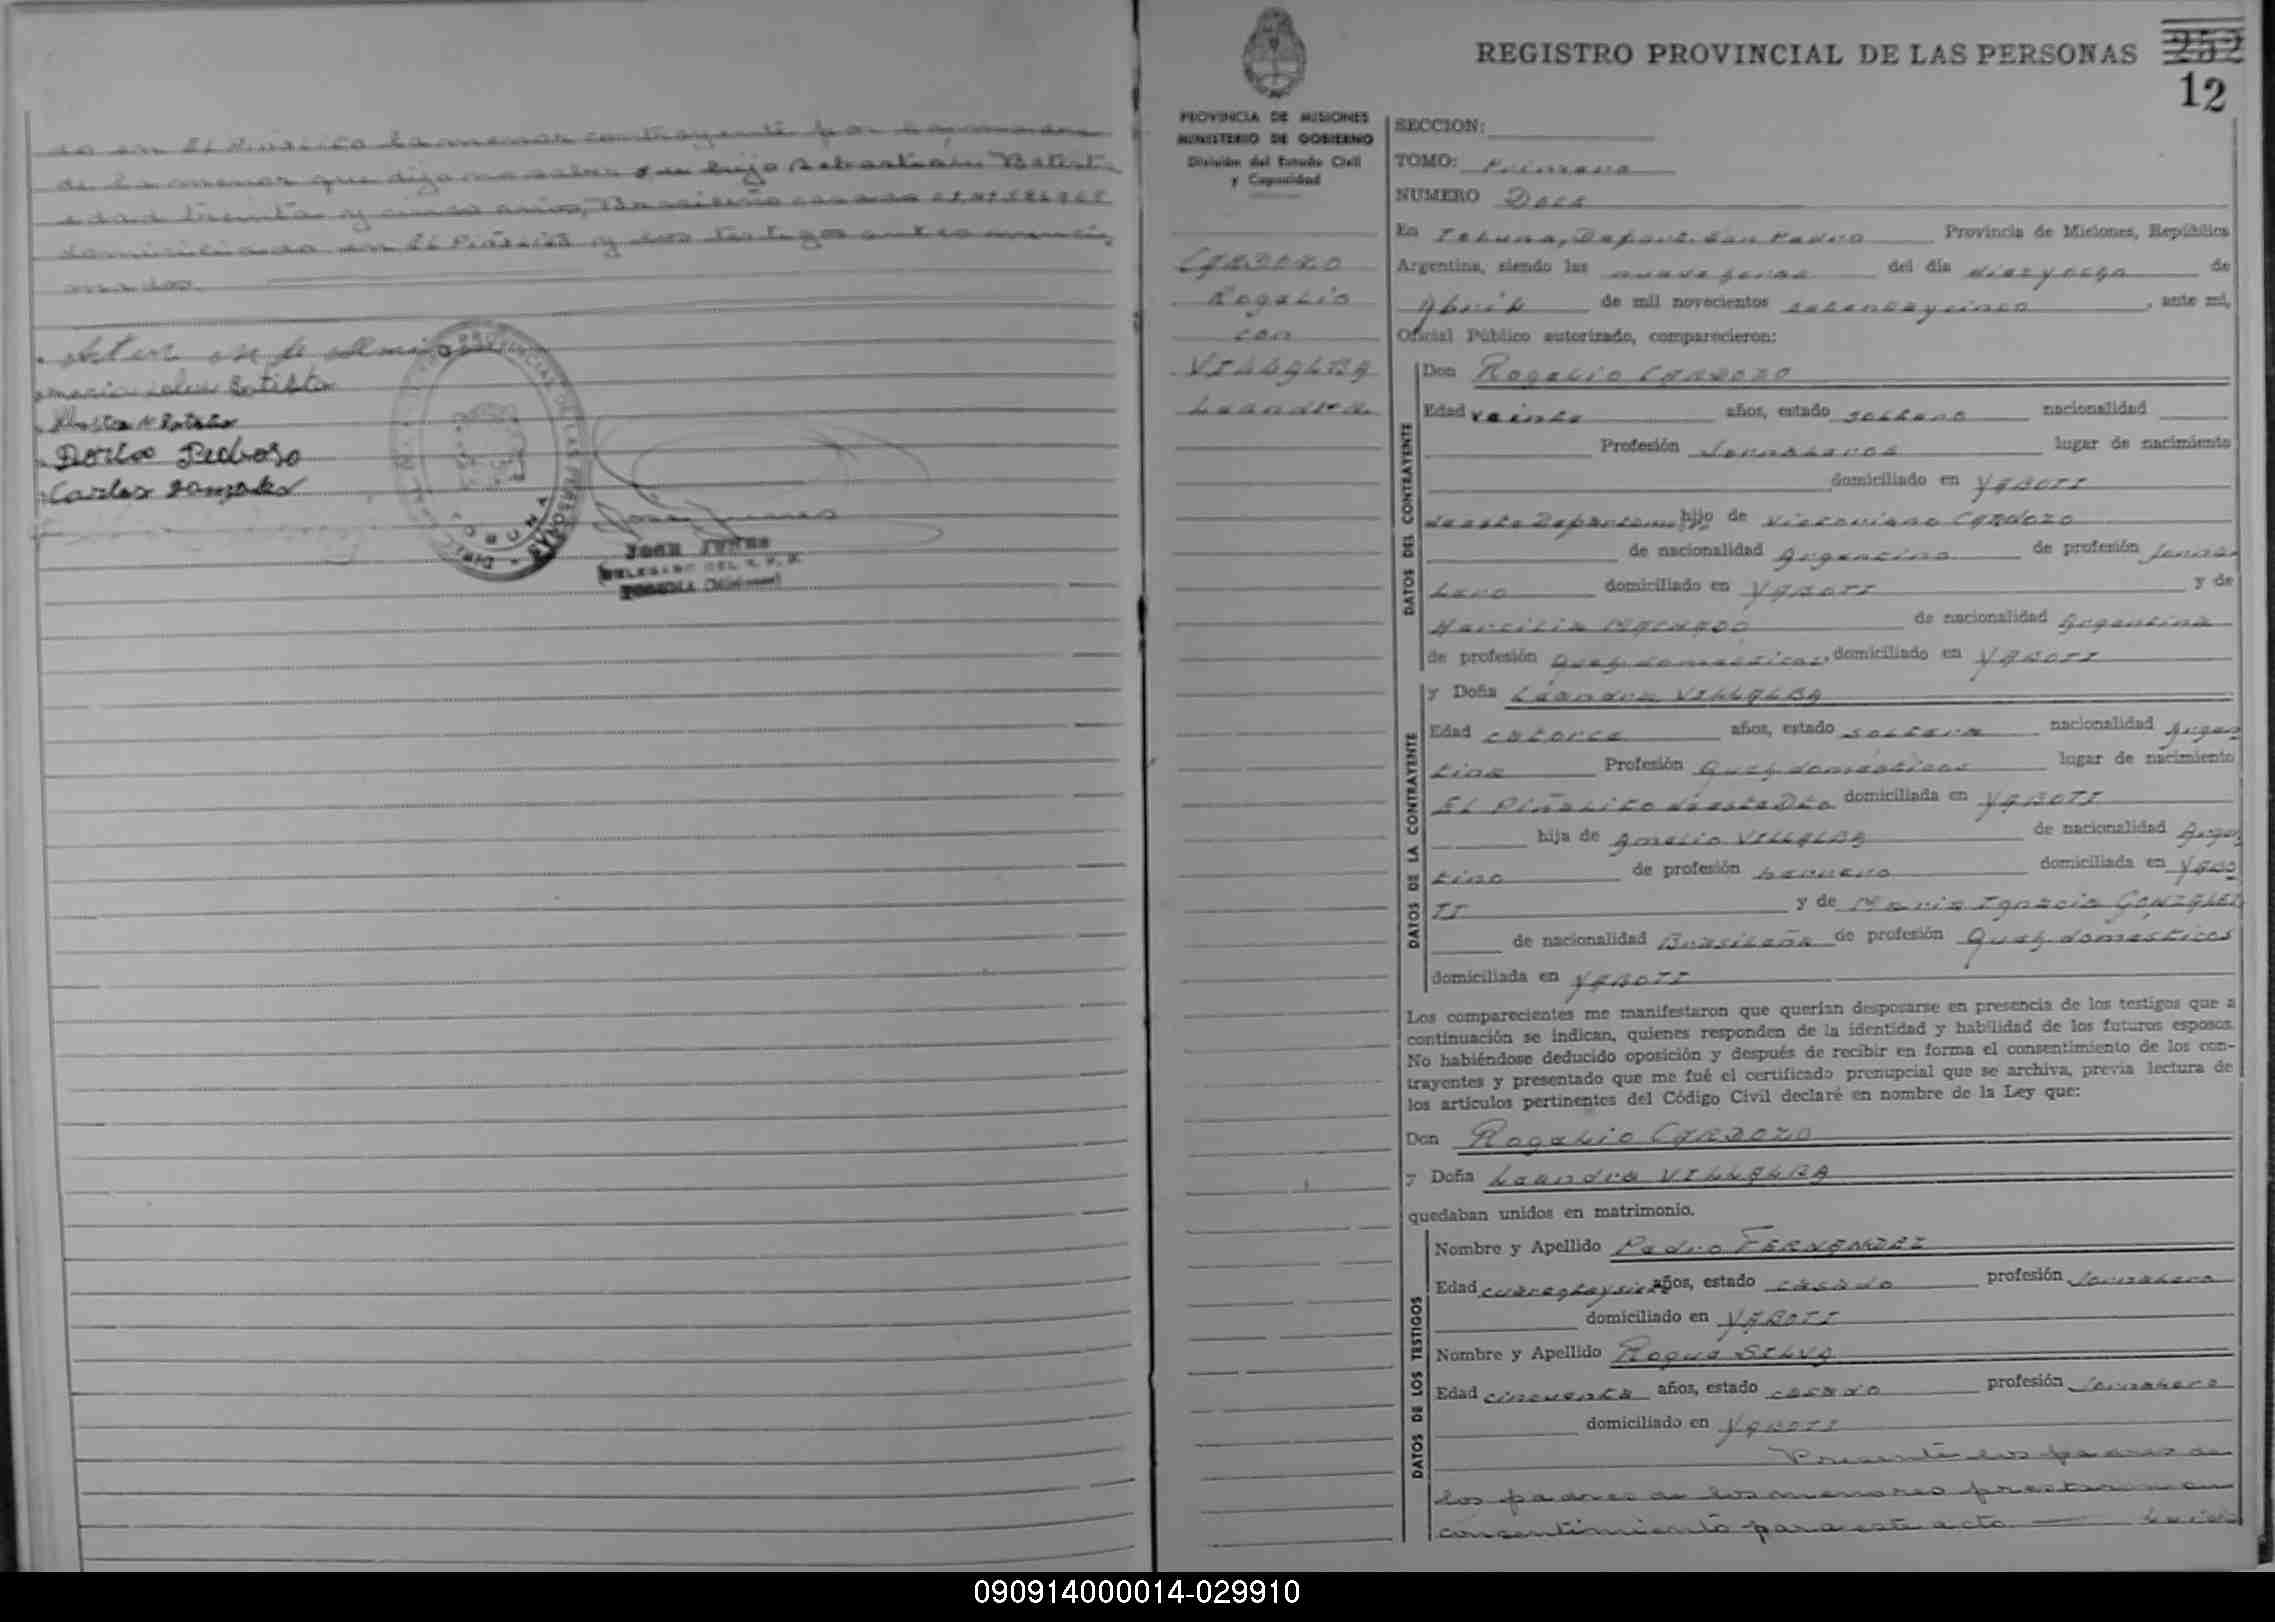 do en El Piñalito la menor contrayente por
de la menor que dijo no saber su hijo Sebastián Batista
edad treinta y cinco años, Brasileño casado
domiciliado en El Piñalito y los testigos antes mencio
nados.
Batista
Dorico Pedroso
Carlos Gonzales
REGISTRO PROVINCIAL DE LAS PERSONAS
JOSE JUNES
DELEGADO DEL R. P. P.
TOBUNA (Misiones)
REGISTRO PROVINCIAL DE LAS PERSONAS
252
12
PROVINCIA DE MISIONES
MINISTERIO DE GOBIERNO
División del Estado Civil
y Capacidad
CARDOZO
Rogelio
con
VILLALBA
Leandra
SECCION:
TOMO: Primero
NUMERO Doce
En Tobuna, Depart. San Pedro Provincia de Misiones, República
Argentina, siendo las nueve horas del día diez y ocho de
Abril de mil novecientos setenta y cinco, ante mí,
Oficial Público autorizado, comparecieron:
DATOS DEL CONTRAYENTE
Don Rogelio CARDOZO
Edad veinte años, estado soltero nacionalidad
Profesión Jornalero lugar de nacimiento
domiciliado en YABOTI
de este Departam. hijo de Victoriano CARDOZO
de nacionalidad Argentino de profesión Jorna
lero domiciliado en YABOTI y de
Marcilia MACHADO de nacionalidad Argentina
de profesión Queh. domesticos, domiciliado en YABOTI
DATOS DE LA CONTRAYENTE
y Doña Leandra VILLALBA
Edad catorce años, estado soltera nacionalidad Argen
tina Profesión Queh. domésticos lugar de nacimiento
El Piñalito de este Dto. domiciliada en YABOTI
hija de Amelio VILLALBA de nacionalidad Argen
tino de profesión domiciliada en YABO
TI y de Maria Ignacia GONZALEZ
de nacionalidad Brasileña de profesión Queh. domesticos
domiciliada en YABOTI
Los comparecientes me manifestaron que querían desposarse en presencia de los testigos que a
continuación se indican, quienes responden de la identidad y habilidad de los futuros esposos.
No habiéndose deducido oposición y después de recibir en forma el consentimiento de los con-
trayentes y presentado que me fué el certificado prenupcial que se archiva, previa lectura de
los artículos pertinentes del Código Civil declaré en nombre de la Ley que:
Don Rogelio CARDOZO
y Doña Leandra VILLALBA
quedaban unidos en matrimonio.
DATOS DE LOS TESTIGOS
Nombre y Apellido Pedro FERNANDEZ
Edad cuarenta y siete años, estado casado profesión Jornalero
domiciliado en YABOTI
Nombre y Apellido Roque SILVA
Edad cincuenta años, estado casado profesión Jornalero
domiciliado en YABOTI
Presente los padres de
los padres de los menores prestaron su
consentimiento para este acto
090914000014-029910